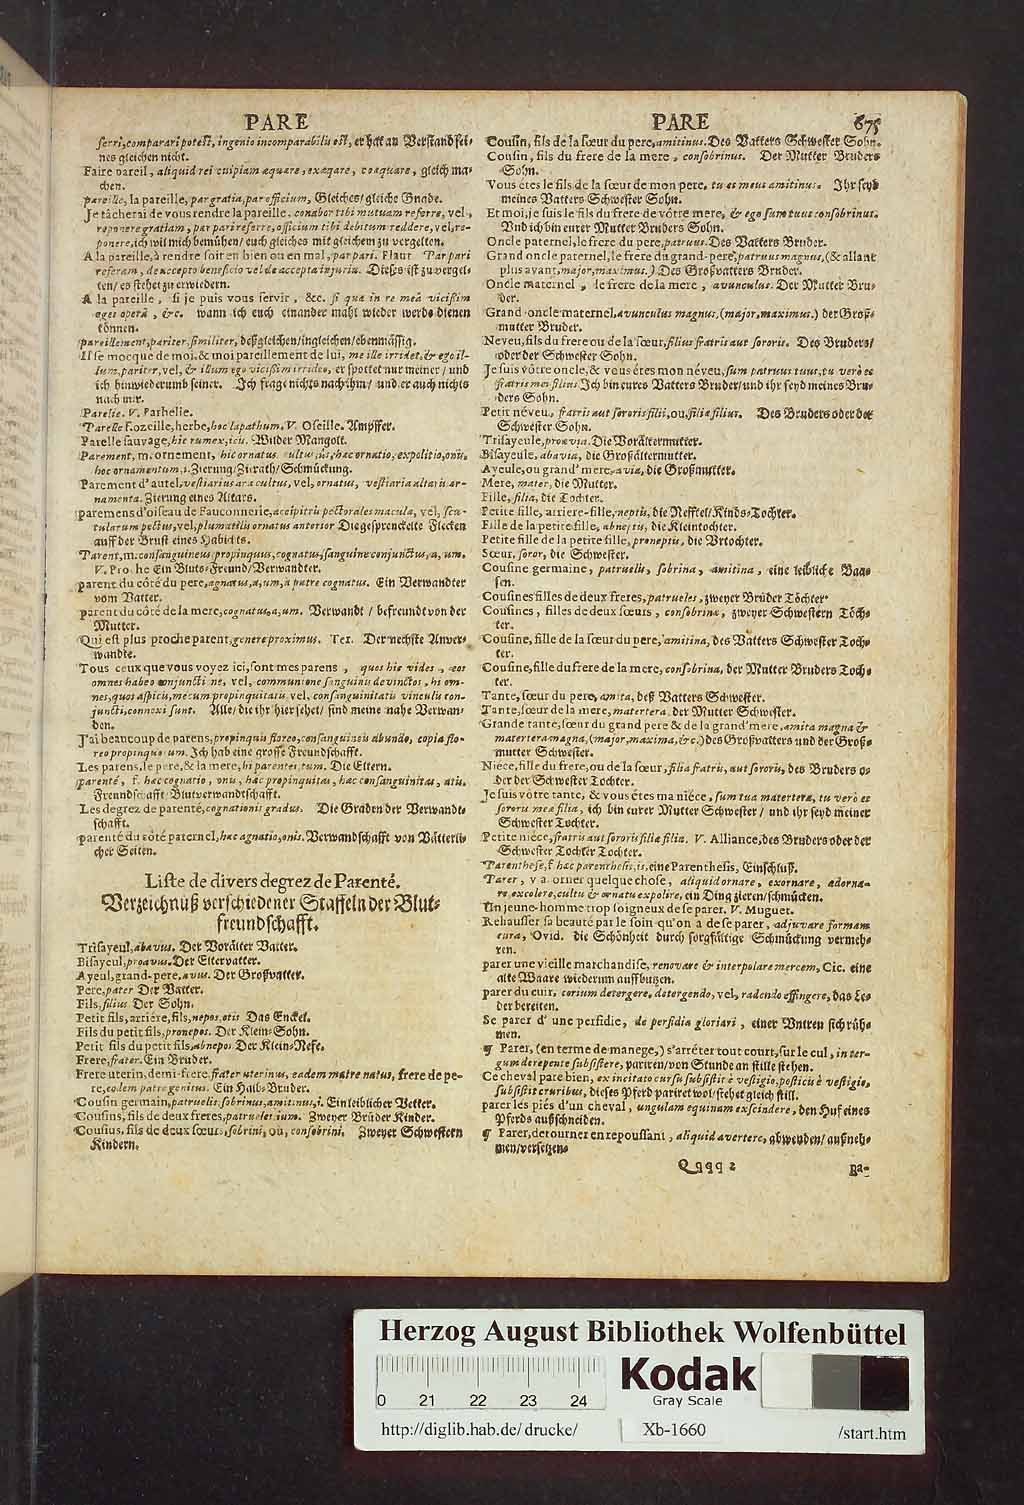 PARE
ferri, comparari potest, ingenio incomparabili est, er hat an Verstand sei-
nes gleichen nicht.
Faire pareil, aliquid rei cuipiam æquare, exæquare, coæquare, gleich ma-
chen.
pareille, la pareille, par gratia, par officium, Gleiches/ gleiche Gnade.
Je tâcherai de vous rendre la pareille, conabor tibi mutuam referre, vel,
reponere gratiam, par pari referre, officium tibi debitum reddere, vel, re-
ponere, ich wil mich bemühen/ euch gleiches mit gleichem zu vergelten.
A la pareille, à rendre soit en bien ou en mal, par pari. Plaut. Par pari
referam, de accepto beneficio vel de accepta injuria. Dieses ist zu vergel-
ten/ es stehet zu erwiedern.
A la pareille, si je puis vous servir, &c. si qua in re meâ vicissim
eges operâ, &c. wann ich euch einander mahl wieder werde dienen
können.
pareillement, pariter, similiter, deßgleichen/ ingleichen/ ebenmässig.
Il se mocque de moi, & moi pareillement de lui, me ille irridet, & ego il-
lum, pariter, vel, & illum ego vicissim irrideo, er spottet nur meiner/ und
ich hinwiederumb seiner. Ich frage nichts nach ihm/ und er auch nichts
nach mir.
Parelie. V. Parhelie.
Parelle f. ozeille, herbe, hoc lapathum. V. Oseille. Ampffer.
Parelle sauvage, hic rumex, icis. Wilder Mangolt.
Parement, m. ornement, hic ornatus, cultus, ûs, hæc ornatio, expolitio, onis,
hoc ornamentum, i. Zierung/ Zierath/ Schmückung.
Parement d'autel, vestiarius ara cultus, vel, ornatus, vestiaria altaris or-
namenta. Zierung eines Altars.
paremens d'oiseau de Fauconnerie, accipitris pectorales macula, vel, scu-
tularum pectus, vel, plumatilis ornatus anterior Die gesprenckelte Flecken
auff der Brust eines Habichts.
Parent, m. consanguineus, propinquus, cognatus, sanguine conjunctus, a, um.
V. Proche Ein Bluts-Freund/ Verwandter.
parent du côté du pere, agnatus, a, um, à patre cognatus. Ein Verwandter
vom Vatter.
parent du côté de la mere, cognatus, a, um. Verwandt/ befreundt von der
Mutter.
Qui est plus proche parent, genere proximus. Ter. Der nechste Anver-
wandte.
Tous ceux que vous voyez ici, sont mes parens, quos hic vides, eos
omnes habeo conjunctione, vel, communione sanguinis devinctos, hi om-
nes, quos aspicis, mecum propinquitatis, vel, consanguinitatis vinculo con-
juncti, connexi sunt. Alle/ die ihr hier sehet/ sind meine nahe Verwan-
den.
J'ai beaucoup de parens, propinquis floreo, consanguineis abundo, copia flo-
reo propinquorum. Ich hab eine grosse Freundschafft.
Les parens, le pere, & la mere, hi parentes, tum. Die Eltern.
parenté, f. hæc cognatio, onis, hæc propinquitas, hæc consanguinitas, atis.
Freundschafft/ Blutverwandtschafft.
Les degrez de parenté, cognationis gradus. Die Graden der Verwandt-
schafft.
parenté du côté paternel, hæc agnatio, onis. Verwandschafft von Vätterli-
cher Seiten.
Liste de divers degrez de Parenté.
Verzeichnüß verschiedener Staffeln der Blut-
freundschafft.
Trisayeul, abavus. Der Vorälter Vatter.
Bisayeul, proavus. Der Eltervatter.
Ayeul, grand-pere, avus. Der Großvatter.
Pere, pater Der Vatter.
Fils, filius Der Sohn.
Petit fils, arriére, fils, nepos, otis Das Enckel.
Fils du petit fils, pronepos. Der Klein-Sohn.
Petit fils du petit fils, abnepos. Der Klein-Nefe.
Frere, frater. Ein Bruder.
Frere uterin, demi-frere, frater uterinus, eadem matre natus, frere de pe-
re, eodem patre genitus. Ein Halb-Bruder.
Cousin germain, patruelis, sobrinus, amitinus, i. Ein leiblicher Vetter.
Cousins, fils de deux freres, patrueles, ium. Zweyer Brüder Kinder.
Cousins, fils de deux sœurs, sobrini, ou, consobrini. Zweyer Schwestern
Kindern.
PARE 675
Cousin, fils de la sœur du pere, amitinus. Des Vatters Schwester Sohn.
Cousin, fils du frere de la mere, consobrinus. Der Mutter Bruders
Sohn.
Vous êtes le fils de la sœur de mon pere, tu es meus amitinus. Ihr seyd
meines Vatters Schwester Sohn.
Et moi, je suis le fils du frere de vôtre mere, & ego sum tuus consobrinus.
Und ich bin eurer Mutter Bruders Sohn.
Oncle paternel, le frere du pere, patruus. Des Vatters Bruder.
Grand oncle paternel, le frere du grand-pere, patruus magnus, (& allant
plus avant, major, maximus.) Des Großvatters Bruder.
Oncle maternel, le frere de la mere, avunculus. Der Mutter Bru-
der.
Grand-oncle maternel, avunculus magnus, (major, maximus.) der Groß-
mutter Bruder.
Neveu, fils du frere ou de la sœur, filius fratris aut sororis. Des Bruders/
oder der Schwester Sohn.
Je suis vôtre oncle, & vous étes mon néveu, sum patruus tuus, tu verò es
fratris mei filius Ich bin eures Vatters Bruder/ und ihr seyd meines Bru-
ders Sohn.
Petit néveu, fratris aut sororis filii, ou, filiæ filius. Des Bruders oder der
Schwester Sohn.
Trisayeule, proavia. Die Vorältermutter.
Bisayeule, abavia, die Großältermutter.
Ayeule, ou grand' mere, avia, die Großmutter.
Mere, mater, die Mutter.
Fille, filia, die Tochter.
Petite fille, arriere-fille, neptis, die Nefftel/ Kinds-Tochter.
Fille de la petite fille, abneptis, die Kleintochter.
Petite fille de la petite fille, proneptis, die Urtochter.
Sœur, soror, die Schwester.
Cousine germaine, patruelis, sobrina, amitina, eine leibliche Baa-
sen.
Cousines filles de deux freres, patrueles, zweyer Brüder Töchter.
Cousines, filles de deux sœurs, consobrinæ, zweyer Schwestern Töch-
ter.
Cousine, fille de la sœur du pere, amitina, des Vatters Schwester Toch-
ter.
Cousine, fille du frere de la mere, consobrina, der Mutter Bruders Toch-
ter.
Tante, sœur du pere, amita, deß Vatters Schwester.
Tante, sœur de la mere, matertera, der Mutter Schwester.
Grande tante, sœur du grand pere & de la grand'mere, amita magna &
matertera magna, (major, maxima, &c.) des Großvatters und der Groß-
mutter Schwester.
Niéce, fille du frere, ou de la sœur, filia fratris, aut sororis, des Bruders o-
der der Schwester Tochter.
Je suis vôtre tante, & vous étes ma niéce, sum tua matertera, tu verò es
sororis meæ filia, ich bin eurer Mutter Schwester/ und ihr seyd meiner
Schwester Tochter.
Petite niéce, fratris aut sororis filiæ filia. V. Alliance, des Bruders oder der
Schwester Tochter Tochter.
Parenthese, f. hæc parenthesis, is, eine Parenthesis, Einschluß.
Parer, v. a. orner quelque chose, aliquid ornare, exornare, adorna-
re, excolere, cultu & ornatu expolire, ein Ding zieren/ schmücken.
Un jeune-homme trop soigneux de se parer. V. Muguet.
Rehausser sa beauté par le soin qu'on a de se parer, adjuvare formam
cura, Ovid. die Schönheit durch sorgfältige Schmückung vermeh-
ren.
parer une vieille marchandise, renovare & interpolare mercem, Cic. eine
alte Waare wiederum auffbutzen.
parer du cuir, corium detergere, detergendo, vel, radendo effingere, das Le-
der bereiten.
Se parer d'une perfidie, de perfidia gloriari, einer Untreu sich rüh-
men.
¶ Parer, (en terme de manege,) s'arréter tout court, sur le cul, in ter-
gum derepente subsistere, pariren/ von Stunde an stille stehen.
Ce cheval pare bien, ex incitato cursu subsistit è vestigio, posticis è vestigio,
subsistit cruribus, dieses Pferd pariret wol/ stehet gleich still.
parer les piés d'un cheval, ungulam equinam exscindere, den Huf eines
Pferds außschneiden.
¶ Parer, detourner en repoussant, aliquid avertere, abwenden/ außneh-
men/ versetzen.
Qqqq 2 pa-
Herzog August Bibliothek Wolfenbüttel
Kodak
Gray Scale
0 21 22 23 24
http://diglib.hab.de/drucke/ Xb-1660 /start.htm